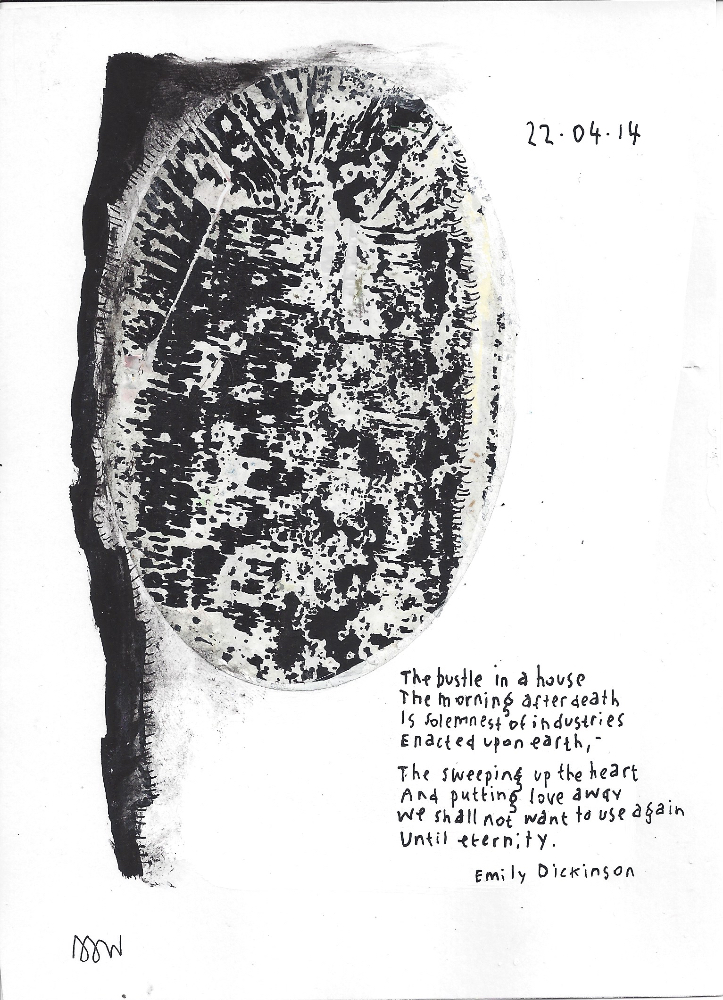 22.04.14
The bustle in a house
The morning after death
Is solemnest of industries
Enacted upon earth,-
The sweeping up the heart
And putting love away
We shall not want to use again
Until eternity.
Emily Dickinson